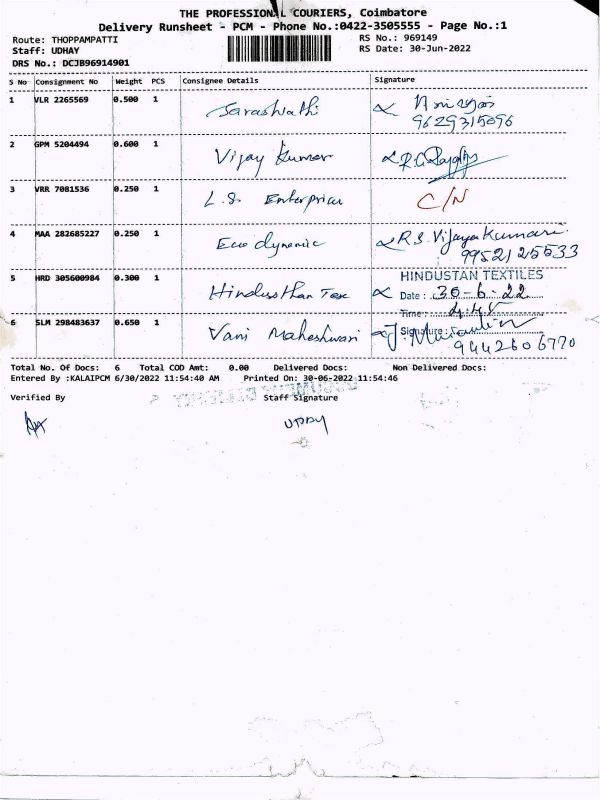 THE PROFESSIONAL COURIERS, Coimbatore
Delivery Runsheet - PCM - Phone No.:0422-3505555 - Page No.:1
Route: THOPPAMPATTI RS No.: 969149
Staff: UDHAY RS Date: 30-Jun-2022
DRS No.: DCJB96914901
S No Consignment No Weight PCS Consignee Details Signature
1 VLR 2265569 0.500 1 Saraswathi
9629315096
2 GPM 5204494 0.600 1 Vijay Kumar
3 VRR 7081536 0.250 1 L.S. Enterprises C/N
4 MAA 282685227 0.250 1 Eco dynamic R.S. Vijayakumari
9952125533
HINDUSTAN TEXTILES
5 HRD 305600984 0.300 1 Hindusthan Tex Date : 30-6-22
Time :
6 SLM 298483637 0.650 1 Vani Maheshwari Signature :
9442606770
Total No. Of Docs: 6 Total COD Amt: 0.00 Delivered Docs: Non Delivered Docs:
Entered By :KALAIPCM 6/30/2022 11:54:40 AM Printed On: 30-06-2022 11:54:46
Verified By Staff Signature